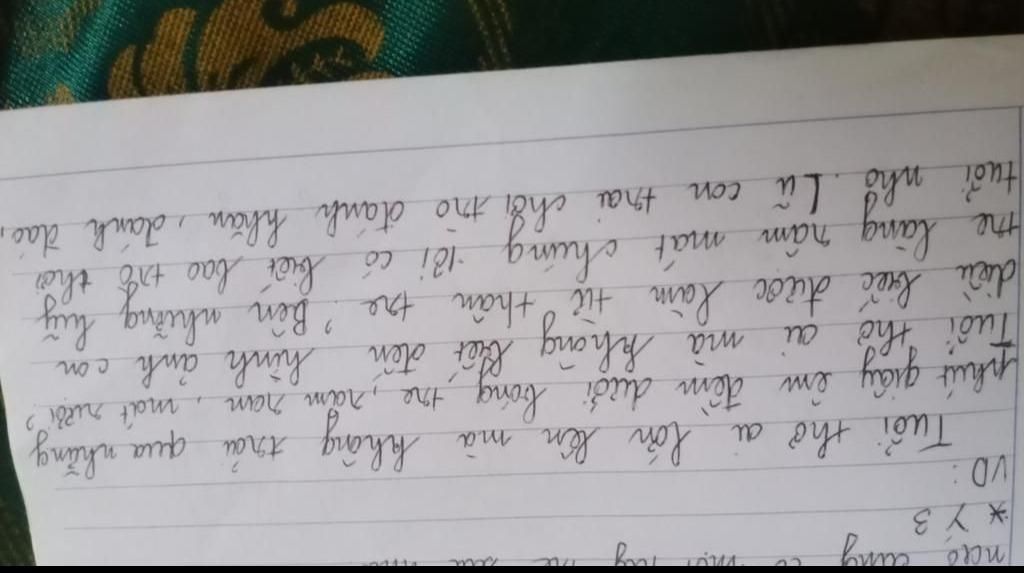 nào cũng có một
* Y 3
VD :
Tuổi thơ ai lớn lên mà không trải qua những
phút giây êm đềm dưới bóng tre, râm ran, mát rười?
Tuổi thơ ai mà không biết đến hình ảnh con
diều biếc được làm từ thân tre. Bên những lũy
tre làng năm mát chúng tôi có biết bao trò thời
tuổi nhỏ. Lũ con trai chơi trò đánh khăn, đánh đáo,